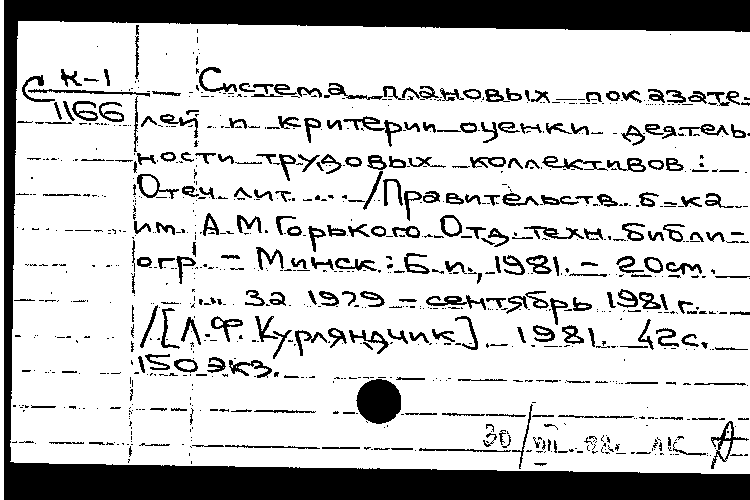 К-1 Система плановых показате-
1166 лей и критерии оценки деятель-
ности трудовых коллективов :
Отеч. лит. ... / Правительств. б-ка
им. А.М.Горького. Отд. техн. библи-
огр. - Минск : Б.и., 1981. - 20 см.
... за 1979 - сентябрь 1981 г.
/[Л.Ф. Курляндчик]. 1981. 42 с.
150 экз.
30/VIII 88г.